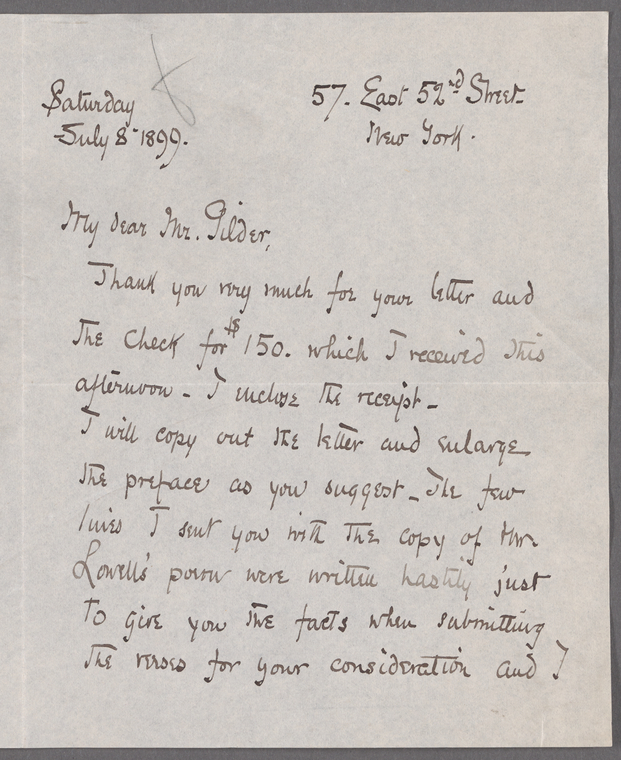 Saturday
July 8th 1899.
57. East 52nd Street
New York.
My dear Mr. Gilder,
Thank you very much for your letter and
the check for $150. which I received this
afternoon - I enclose the receipt -
I will copy out the letter and enlarge
the preface as you suggest - The few
lines I sent you with the copy of Mr.
Lowell's poem were written hastily just
to give you the facts when submitting
the verses for your consideration and I